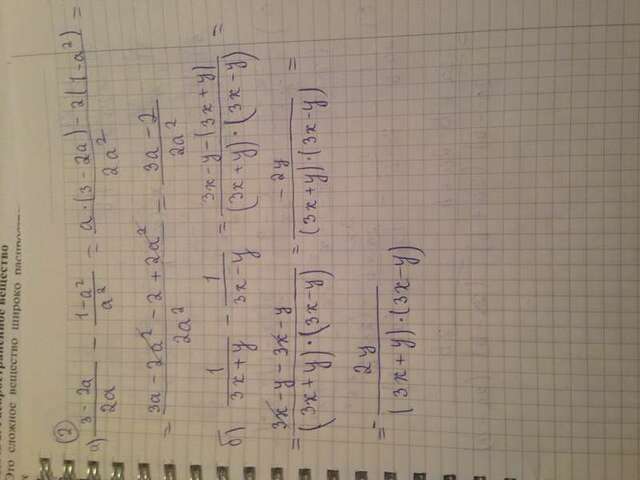 распространенное вещество
Это сложное вещество широко
②
а) \frac{3-2a}{2a} - \frac{1-a^2}{a^2} = \frac{a·(3-2a)-2(1-a^2)}{2a^2} =
= \frac{3a-2a^2-2+2a^2}{2a^2} = \frac{3a-2}{2a^2}
б) \frac{1}{3x+y} - \frac{1}{3x-y} = \frac{3x-y-(3x+y)}{(3x+y)·(3x-y)} =
= \frac{3x-y-3x-y}{(3x+y)·(3x-y)} = \frac{-2y}{(3x+y)·(3x-y)} =
= - \frac{2y}{(3x+y)·(3x-y)}